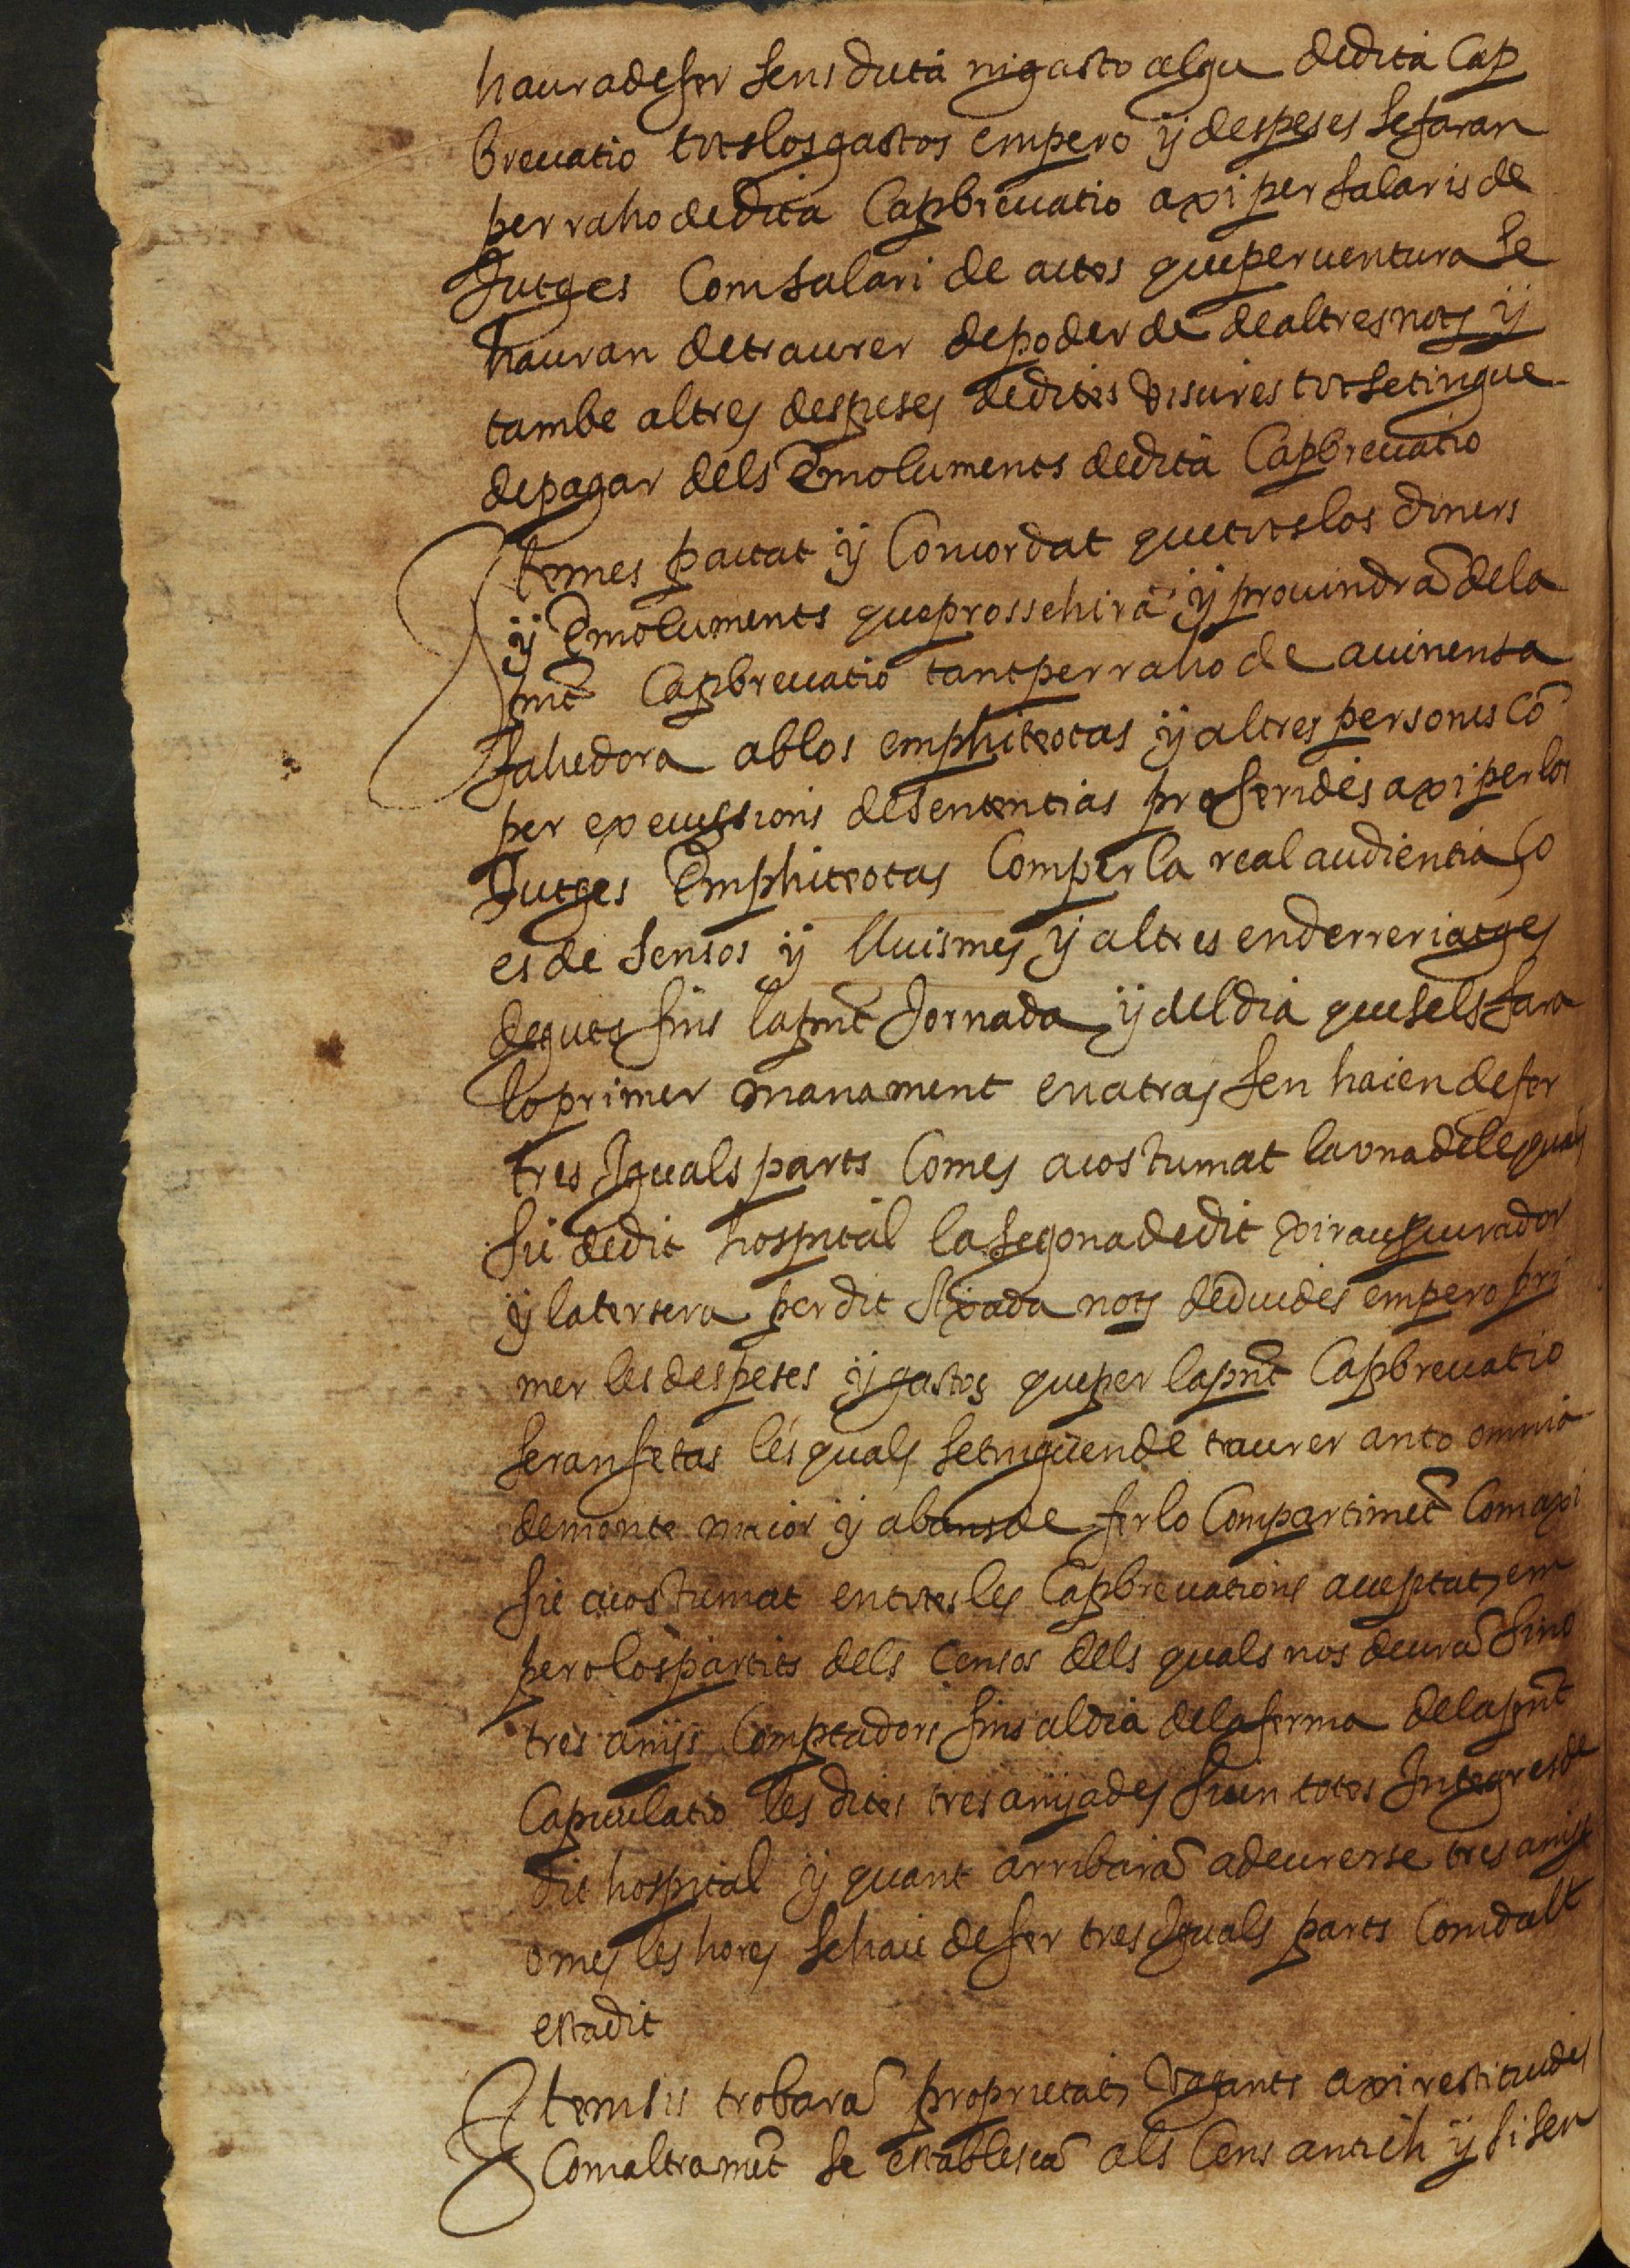 hauradefer sens duta nigasto algu dedita Cap
brevatio totslosgastos empero ÿ despeses sefaran
per raho dedita Capbrevatio axi per salaris de
Jutges Com salari de actos queperventura se
hauran detraurer depoder de dealtres nots ÿ
tambe altres despeses dedites visures tot setingue
depagar dels Emoluments dedita Capbrevatio
Item es pactat ÿ Concordat quetotslos diners
ÿ Emoluments queprossehirã ÿ provindrã dela
pnt Capbrevatio tantperraho de avinensa
fahedora ablos emphiteotas ÿ altres persones Cõ
per execussions desentencias proferides axi perlos
Jutges Emphiteotas Comperla real audientia ço
es de sensos ÿ lluismes ÿ altres enderreriatges
deguts fins lapnt Jornada ÿ deldia quesels fara
loprimer manament enatras sen haien defer
tres Iguals parts Comes acostumat launa deles quals
sie dedit hospital lasegona dedit xirau procurador
ÿ latersera per dit Rexada nots deduides empero pri
mer les despeses ÿ gastos queper lapnt Capbrevatio
seran fetas lesquals setinguende traurer anto omnia
demonte maior ÿ abansde ferlo Compartimẽt Comaxi
sie acostumat entotes les Capbrevations aceptats em
perolospartits dels Censos dels quals nos deurã sino
tres anÿs Comptadors fins aldia delaferma delapnt
Capitulatio les dites tres anÿades sien totes Integres de
dit hospital ÿ quant arribarã adeurerse tres anÿs
o mes les hores sehaie defer tres Iguals parts Comdalt
estadit
Item sis trobarã proprietats vagants axi restituides
Comaltramẽt se establescã als Cens antich ÿ si sen